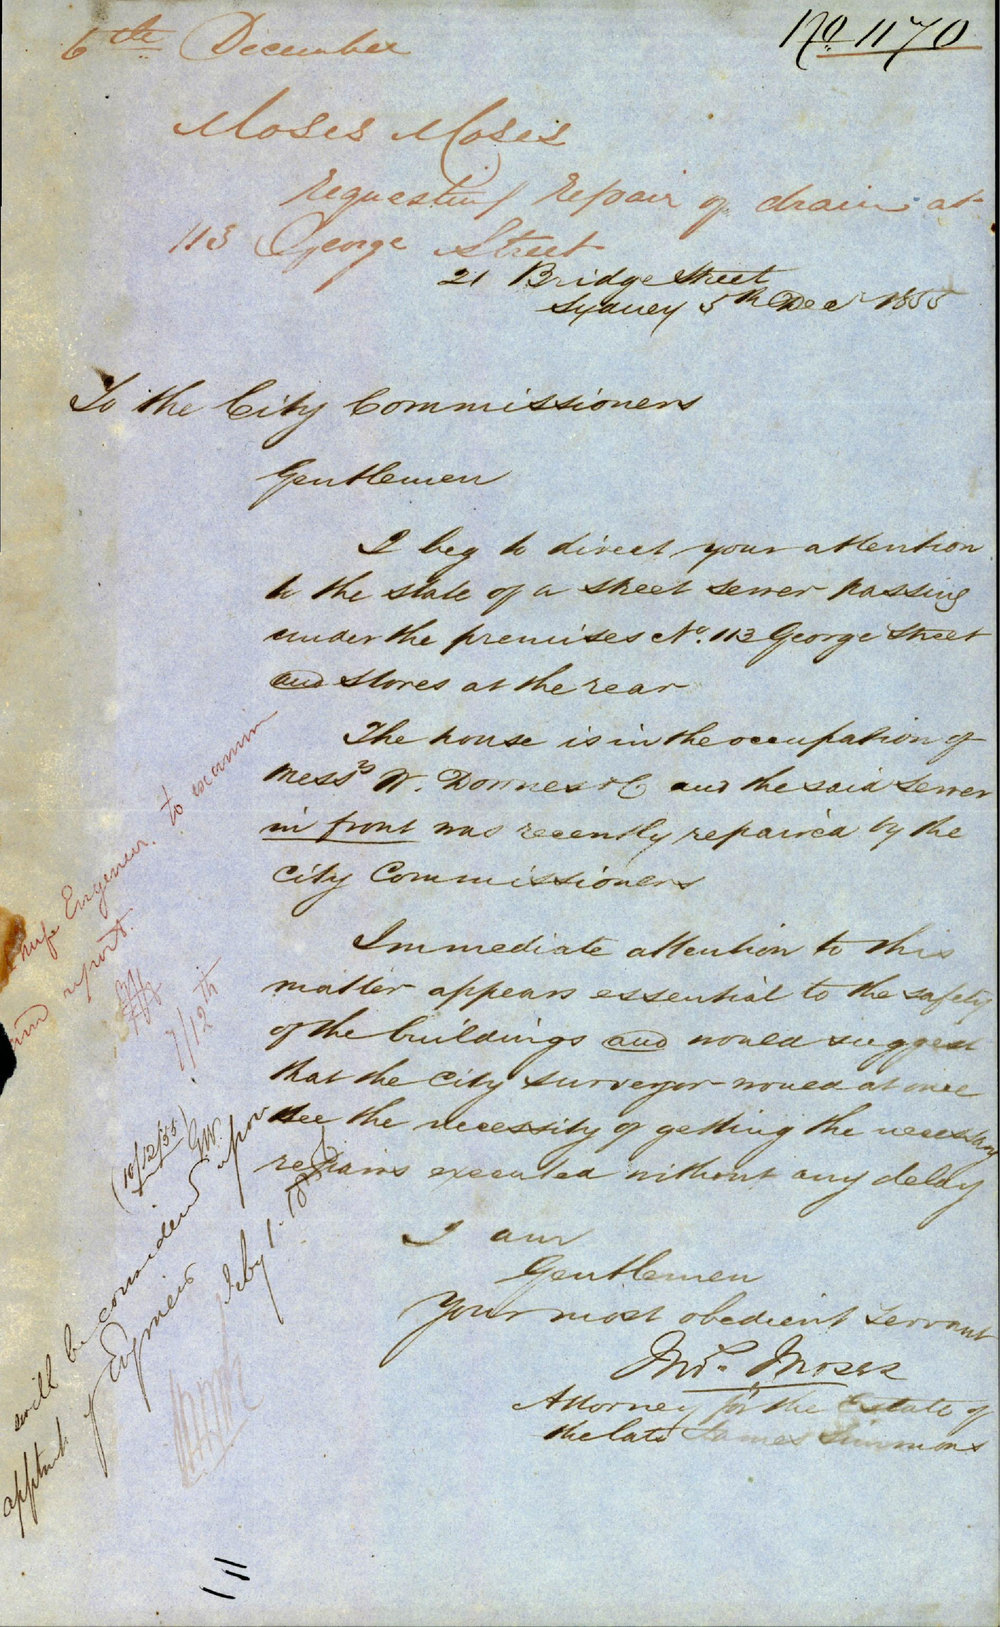 No 1170
6th December
Moses Moses
requesting repair of drain at
113 George Street
21 Bridge Street
Sydney 5th Dec 1855
To the City Commissioners
Gentlemen
I beg to direct your attention
to the state of a street sewer passing
under the premises No. 113 George Street
and stores at the rear
The house is in the occupation of
Messrs W. Downes & C and the said sewer
in front was recently repaired by the
City Commissioners
Immediate attention to this
matter appears essential to the safety
of the buildings and would suggest
that the City Surveyor would at once
see the necessity of getting the necessary
repairs executed without any delay
I am
Gentlemen
Your most obedient servant
Mo. Moses
Attorney for the Estate of
the late James Simmons
Engineer. to examin
and report.
7/12th
(10/12/55) GW.
will be considered upon
apptmt of Engineer Feby 1. 1856